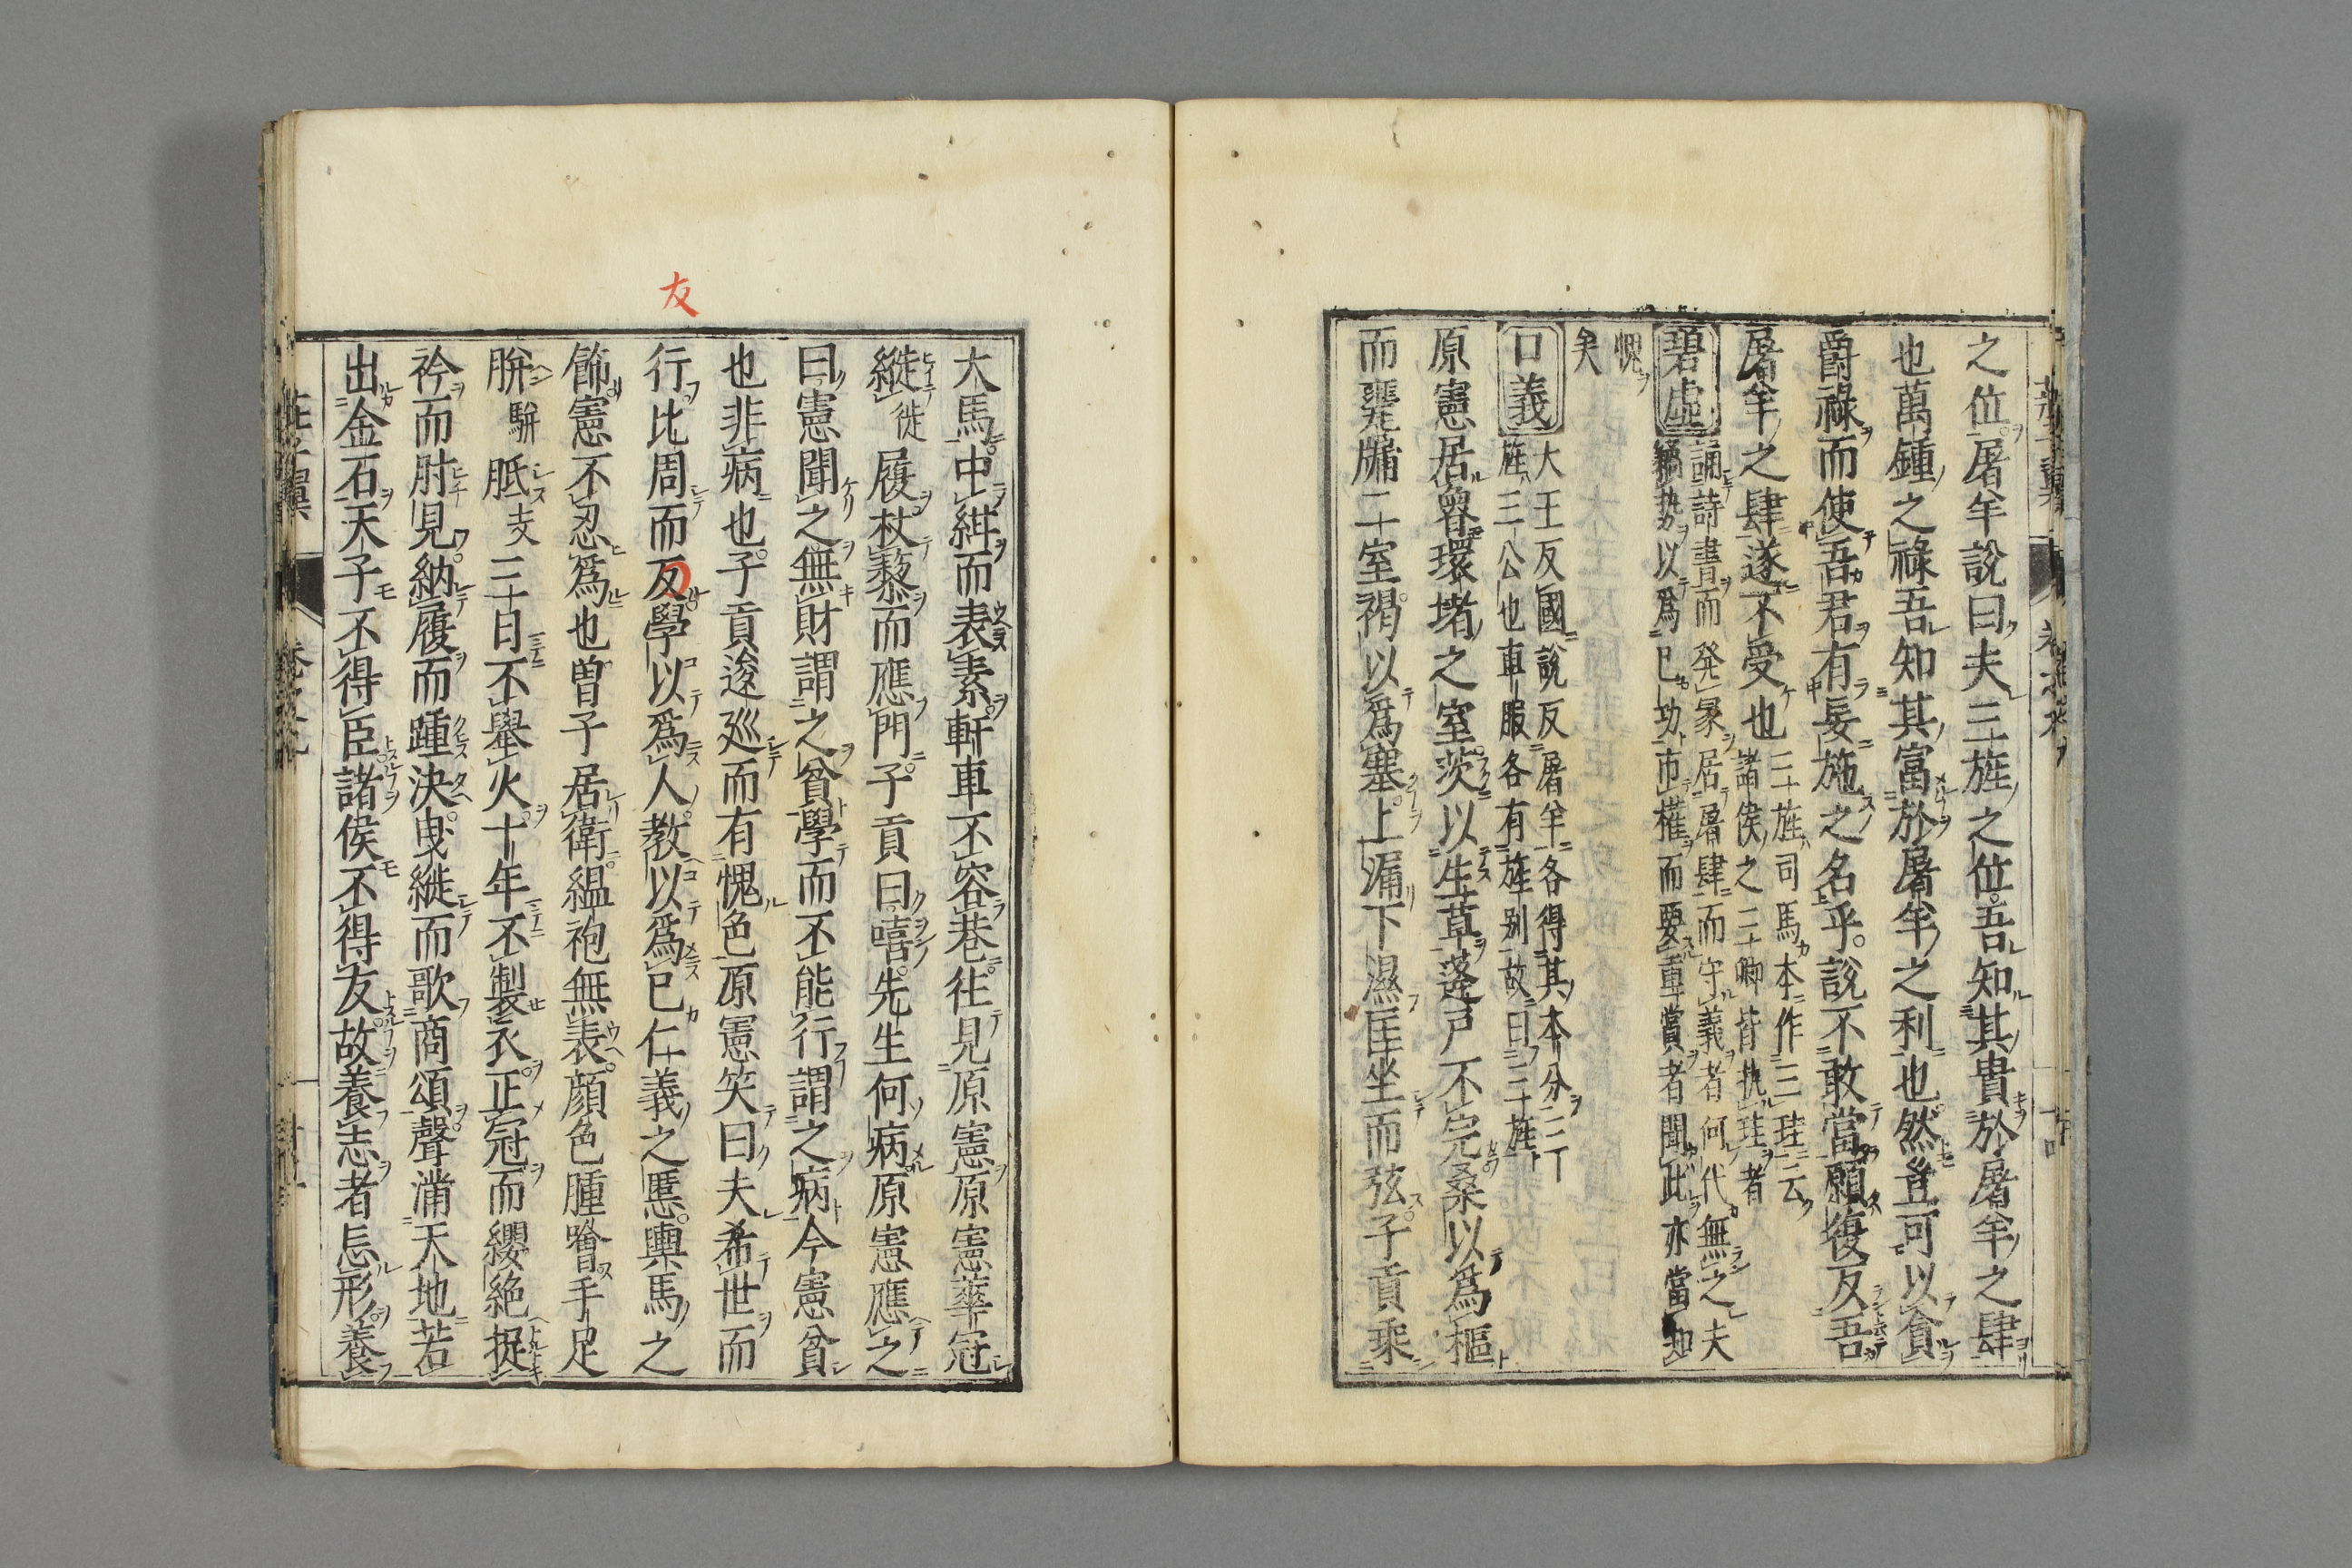 之位屠羊說曰夫三旌之位吾知其貴於屠羊之肆
也萬鍾之祿吾知其富於屠羊之利也然豈可以貪
爵祿而使吾君有妄施之名乎說不敢當願復反吾
屠羊之肆遂不受也三旌司馬本作三珪云
諸侯之三卿皆執珪者
碧虛誦詩書而発冢居屠肆而守義者何代無之夫
竊勢以爲己功市權而要重賞者聞此亦當知
愧
矣
口義大王反國說反屠羊各得其本分二丁
旌三公也車服各有旌別故曰三旌
原憲居魯環堵之室茨以生草蓬戸不完桑以爲樞
而甕牖二室褐以爲塞上漏下濕匡坐而弦子貢乘
友
大馬中紺而表素軒車不容巷往見原憲原憲華冠
縰徙履杖藜而應門子貢曰嘻先生何病原憲應之
曰憲聞之無財謂之貧學而不能行謂之病今憲貧
也非病也子貢逡廵而有愧色原憲笑曰夫希世而
行比周而反學以爲人教以爲已仁義之慝輿馬之
飾憲不忍爲也曽子居衛縕袍無表顔色腫噲手足
胼駢胝支三日不舉火十年不製衣正冠而纓絶捉
衿而肘見納履而踵決曳縰而歌商頌聲滿天地若
出金石天子不得臣諸侯不得友故養志者忘形養